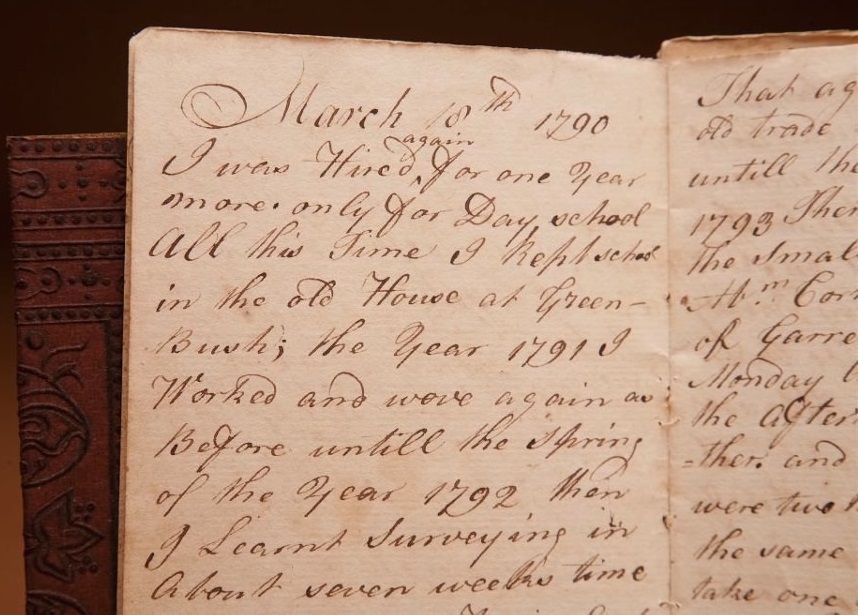 March 18th 1790
again
I was Hired for one Year
more. only for Day, school
All this Time I kept school
in the old House at Green-
Bush; the Year 1791 I
Worked and wove again as
Before untill the Spring
of the Year 1792 then
I Learnt Surveying in
About seven weeks time
That
old trade
untill the
1793
the Smal
Ab.m Cor
of Garre
Monday
the After
-ther. and
were two
the same
take one